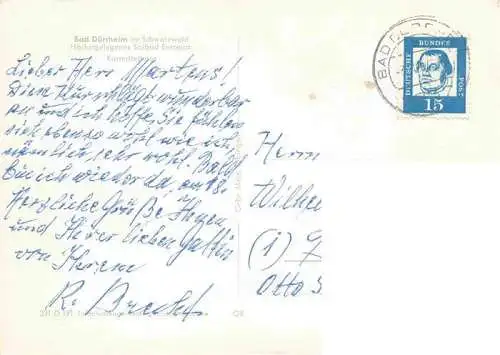 Bad Dürrheim im Schwarzwald
Höchstgelegenes Solbad Europas
Lieber Herr Martens!
Die Kur schlägt wunderbar
an und ich hoffe, Sie fühlen
sich ebenso wohl wie ich,
nämlich sehr wohl. Bald
bin ich wieder da, am 18.
Herzliche Grüße Ihnen
und Ihrer lieben Gattin
von
Ihrem
R.
DEUTSCHE
BUNDES
POST
15
BAD
Herrn
Wilhe
(1)
Otto